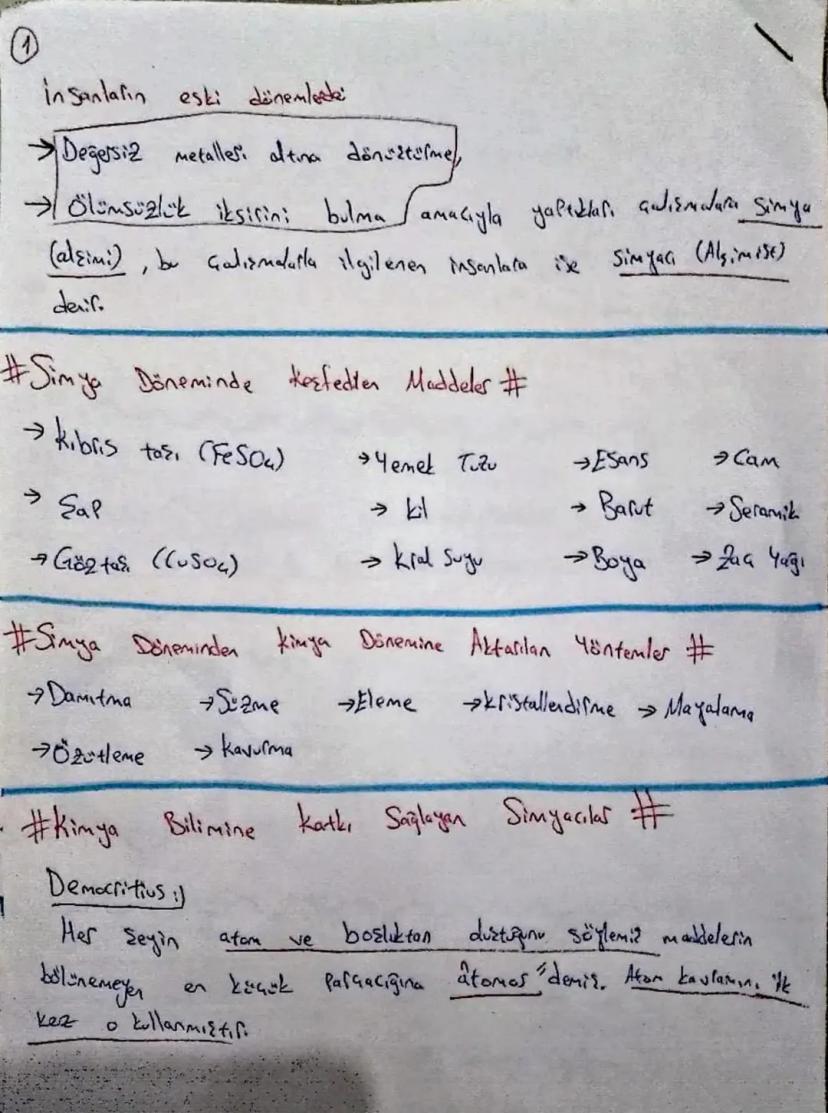 1
insanların eski dönemlerde
→ Değersiz metalleri altına dönüştürme,
→ Ölümsüzlük iksirini bulma amacıyla yaptıkları çalışmalara simya
(alşimi), bu çalışmalarla ilgilenen insanlara ise simyacı (Alşimist)
denir.
#Simya Döneminde Keşfedilen Maddeler #
→ Kıbrıs taşı (FeSO4) → Yemek Tuzu → Esans → Cam
→ Şap → Kil → Barut → Seramik
→ Göz taşı (CuSO4) → Kral Suyu → Boya → Zaç Yağı
#Simya Döneminden Kimya Dönemine Aktarılan Yöntemler #
→ Damıtma → Süzme → Eleme → Kristallendirme → Mayalama
→ Özütleme → Kavurma
#Kimya Bilimine Katkı Sağlayan Simyacılar #
Democritius :)
Her şeyin atom ve boşluktan oluştuğunu söylemiş maddelerin
bölünemeyen en küçük parçacığına "atomos" demiş. Atom kavramını ilk
kez o kullanmıştır.